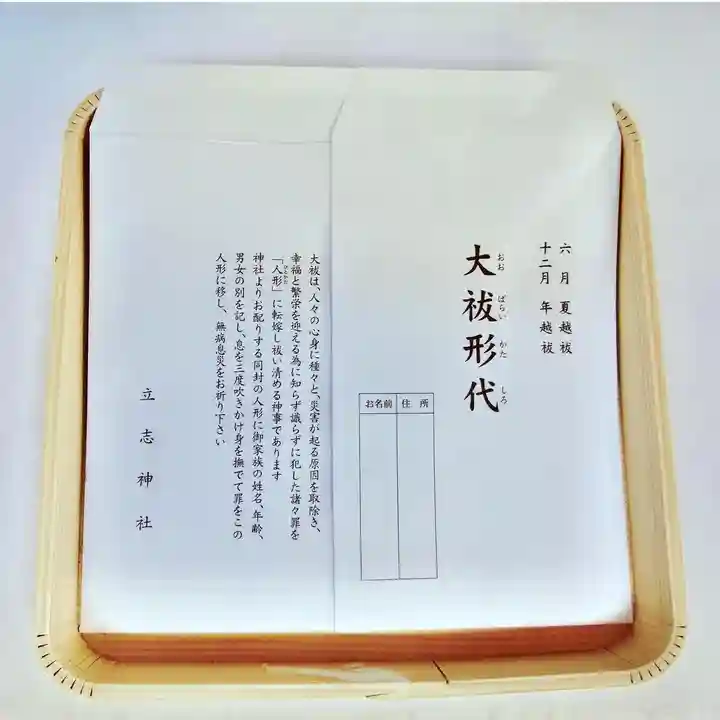 六月 夏越祓
十二月 年越祓
大祓形代
おお ばらい かた しろ
住所
お名前
大祓は、人々の心身に種々と、災害が起る原因を取除き、
幸福と繁栄を迎える為に知らず識らずに犯した諸々罪を
「人形」に転嫁し祓い清める神事であります
ひとかた
神社よりお配りする同封の人形に御家族の姓名、年齢、
男女の別を記し、息を三度吹きかけ身を撫でて罪をこの
人形に移し、無病息災をお祈り下さい
立志神社